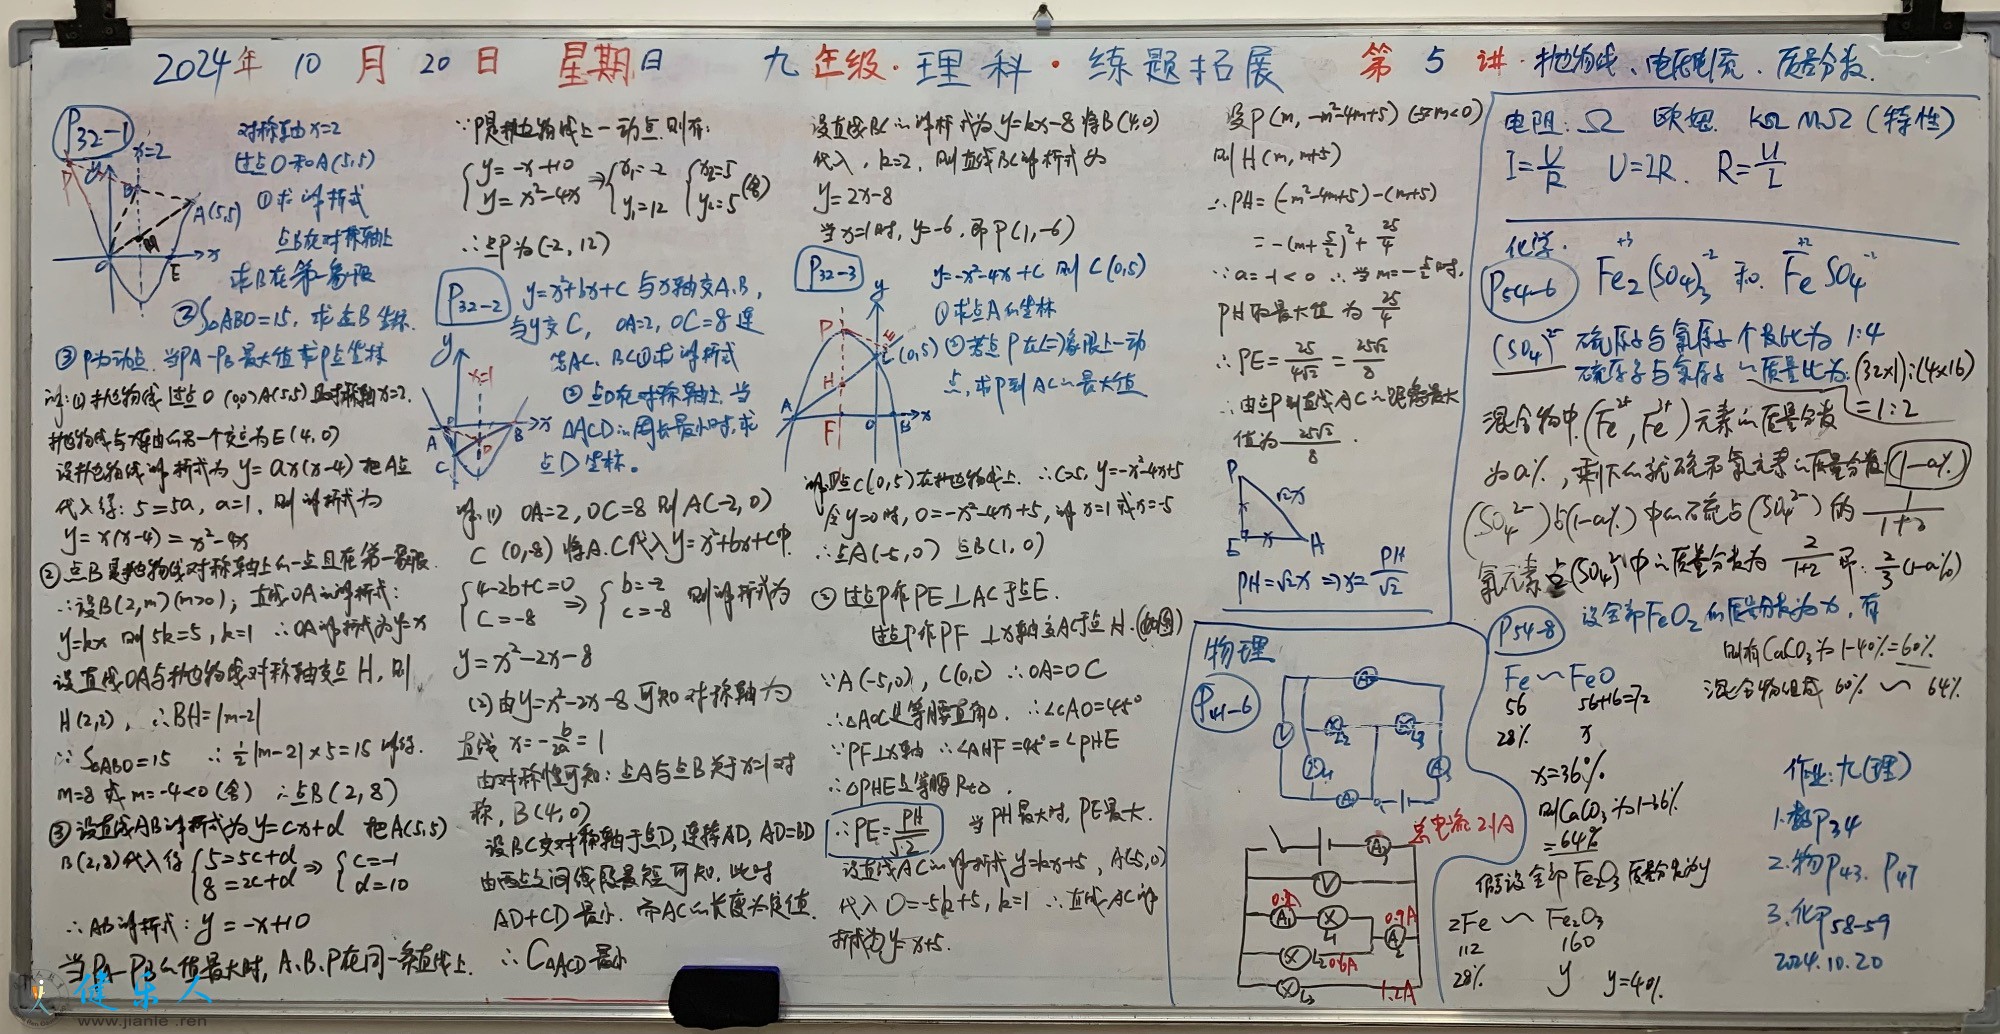 2024年 10 月 20 日 星期日 九年级·理科·练题拓展 第 5 讲·抛物线、电阻电流、质量分数.
P32-1
对称轴x=2
过点O和A(5,5)
①求解析式
点B在对称轴上
求B在第一象限
②S△ABO=15, 求点B坐标.
③P为动点. 当PA-PB最大值求P点坐标
x=2
y
P
B
A(5,5)
H
O
E
x
解:(1)抛物线过点O(0,0)A(5,5)且对称轴x=2.
抛物线与x轴的另一个交点为E(4,0)
设抛物线解析式为y=ax(x-4) 把A点
代入得: 5=5a, a=1, 则解析式为
y=x(x-4)=x²-4x
②点B是抛物线对称轴上的一点且在第一象限.
∴设B(2,m)(m>0); 直线OA的解析式:
y=kx 则5k=5, k=1 ∴OA解析式为y=x
设直线OA与抛物线对称轴交点H, 则
H(2,2), ∴BH=|m-2|
∵S△ABO=15 ∴½|m-2|×5=15 解得.
m=8 或 m=-4<0(舍) ∴点B(2,8)
③设直线AB解析式为y=cx+d 把A(5,5)
B(2,8)代入得 {5=5c+d 8=2c+d ⇒ {c=-1 d=10
∴AB解析式: y=-x+10
当PA-PB的值最大时, A.B.P在同一条直线上.
∵P是抛物线上一动点.则有:
{y=-x+10 y=x²-4x ⇒ {x₁=-2 y₁=12 {x₂=5 y₂=5 (舍)
∴点P为(-2,12)
P32-2
y=x²+bx+c 与x轴交A.B,
与y交C, OA=2, OC=8 连
接AC. BC①求解析式
②点D在对称轴上, 当
△ACD的周长最小时,求
点D坐标。
y
x=1
A
B
x
C
D
解:(1) OA=2, OC=8 则A(-2,0)
C (0,-8) 将A.C代入y=x²+bx+c中.
{4-2b+c=0 c=-8 ⇒ {b=-2 c=-8 则解析式为
y=x²-2x-8
(2)由y=x²-2x-8可知对称轴为
直线 x=-b/2a=1
由对称性可知: 点A与点B关于x=1对
称, B(4,0)
设BC交对称轴于点D, 连接AD, AD=BD
由两点之间线段最短可知. 此时
AD+CD最小. 而AC的长度为定值.
∴C△ACD最小
设直线BC的解析式为y=kx-8 将B(4,0)
代入, k=2, 则直线BC解析式为
y=2x-8
当x=1时, y=-6, 即P(1,-6)
P32-3
y=-x²-4x+c 则C(0,5)
①求点A的坐标
②若点P在(二)象限上一动
点,求P到AC的最大值
y
P
E
C(0,5)
H
A
F
O
B
x
解①点C(0,5)在抛物线上. ∴c=5, y=-x²-4x+5
令y=0时, 0=-x²-4x+5, 解x=1或x=-5
∴点A(-5,0) 点B(1,0)
②过点P作PE⊥AC于点E.
过点P作PF⊥x轴交AC于点H.(如图)
∵A(-5,0), C(0,5) ∴OA=OC
∴△AOC是等腰直角△. ∴∠CAO=45°
∵PF⊥x轴 ∴∠AHF=45°=∠PHE
∴△PHE是等腰Rt△.
∴PE=PH/√2 当PH最大时, PE最大.
设直线AC的解析式y=kx+5, A(-5,0)
代入 0=-5k+5, k=1 ∴直线AC解
析式为y=x+5.
设P(m,-m²-4m+5) (-5<m<0)
则H(m,m+5)
∴PH=(-m²-4m+5)-(m+5)
=-(m+5/2)²+25/4
∵a=-1<0 ∴当m=-5/2时,
PH取最大值为25/4
∴PE=25/4√2=25√2/8
∴由点P到直线AC的距离最大
值为25√2/8.
P
√2x
x
E
x
H
PH=√2x ⇒x=PH/√2
电阻: Ω 欧姆. kΩ MΩ (特性)
I=U/R U=IR. R=U/I
化学.
P54-6
+3 -2 +2 -2
Fe₂(SO₄)₃ 和 FeSO₄
(SO₄)²⁻ 硫原子与氧原子个数比为 1:4
硫原子与氧原子的质量比为:(32×1):(4×16)
=1:2
混合物中.(Fe²⁺,Fe³⁺)元素的质量分数
为a%, 剩下的就硫和氧元素的质量分数:(1-a%)
(SO₄²⁻)占(1-a%)中的硫占(SO₄²⁻)的 1/1+2
氧元素占(SO₄)²⁻中的质量分数为 2/1+2 即: 2/3(1-a%)
P54-8
设全部FeO₂的质量分数为x, 有
Fe ~ FeO
56 56+16=72
28% x
x=36%
则CaCO₃为1-36%
=64%
则有CaCO₃为1-40%=60%
混合物组成 60% ~ 64%
假设全部Fe₂O₃质量分数为y
2Fe ~ Fe₂O₃
112 160
28% y y=40%.
物理
P41-6
A
V
L2
L3
L1
A3
A
总电流2.1A
A
V
A1
L1
0.9A
A2
L2
0.6A
L3
1.2A
作业:九(理)
1.数P34
2.物P43. P47
3.化P58-59
2024.10.20
健乐人
www.jianle.ren